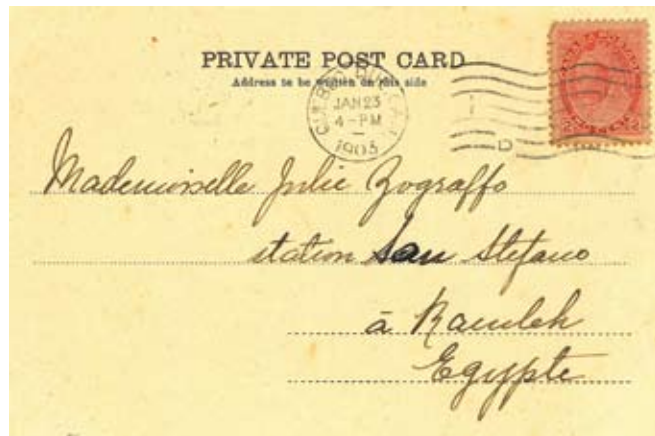 PRIVATE POST CARD
Address to be written on this side
QUEBEC, QUE. CAN.
JAN 23
4 - PM
1903
D
Mademoiselle Julie Zograffo
station San Stefano
à Ramleh
Egypte